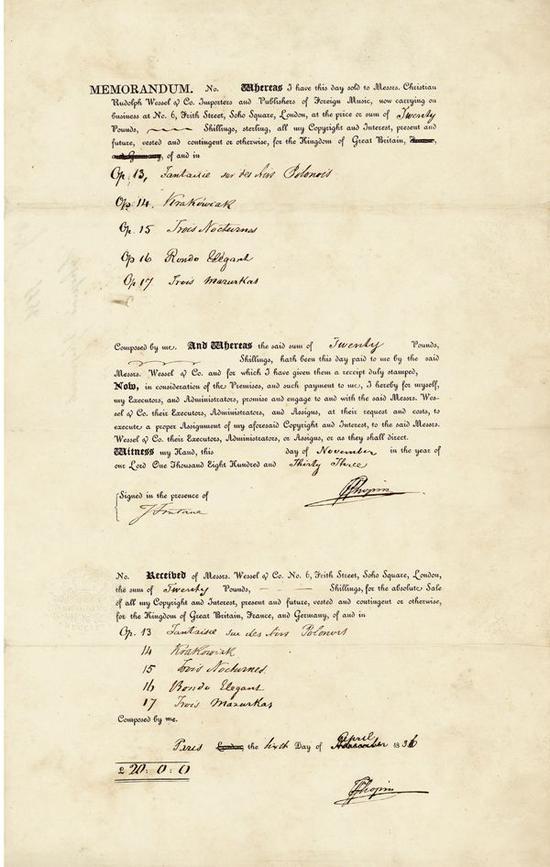 MEMORANDUM. No. Whereas I have this day sold to Messrs. Christian
Rudolph Wessel & Co. Importers and Publishers of Foreign Music, now carrying on
business at No. 6, Frith Street, Soho Square, London, at the price or sum of Twenty
Pounds, Shillings, sterling, all my Copyright and Interest, present and
future, vested and contingent or otherwise, for the Kingdom of Great Britain, France,
and Germany, of and in
Op. 13, Fantaisie sur des Airs Polonois
Op. 14. Krakówiak
Op. 15 Trois Nocturnes
Op 16 Rondo Elégant
Op 17 Trois Mazurkas
Composed by me. And Whereas the said sum of Twenty Pounds,
Shillings, hath been this day paid to me by the said
Messrs. Wessel & Co. and for which I have given them a receipt duly stamped,
Now, in consideration of the Premises, and such payment to me, I hereby for myself,
my Executors, and Administrators, promise and engage to and with the said Messrs. Wes-
sel & Co. their Executors, Administrators, and Assigns, at their request and costs, to
execute a proper Assignment of my aforesaid Copyright and Interest, to the said Messrs.
Wessel & Co. their Executors, Administrators, or Assigns, or as they shall direct.
Witness my Hand, this day of November in the year of
our Lord One Thousand Eight Hundred and Thirty Three
FChopin
Signed in the presence of
J Fontana
No. Received of Messrs. Wessel & Co. No. 6, Frith Street, Soho Square, London,
the sum of Twenty Pounds, Shillings, for the absolute Sale
of all my Copyright and Interest, present and future, vested and contingent or otherwise,
for the Kingdom of Great Britain, France, and Germany, of and in
Op. 13 Fantaisie sur des Airs Polonois
14 Krakowiak
15 Trois Nocturnes
16 Rondo Elegant
17 Trois Mazurkas
Composed by me.
Paris London the Day of April 1836
£ 20: 0: 0
FChopin